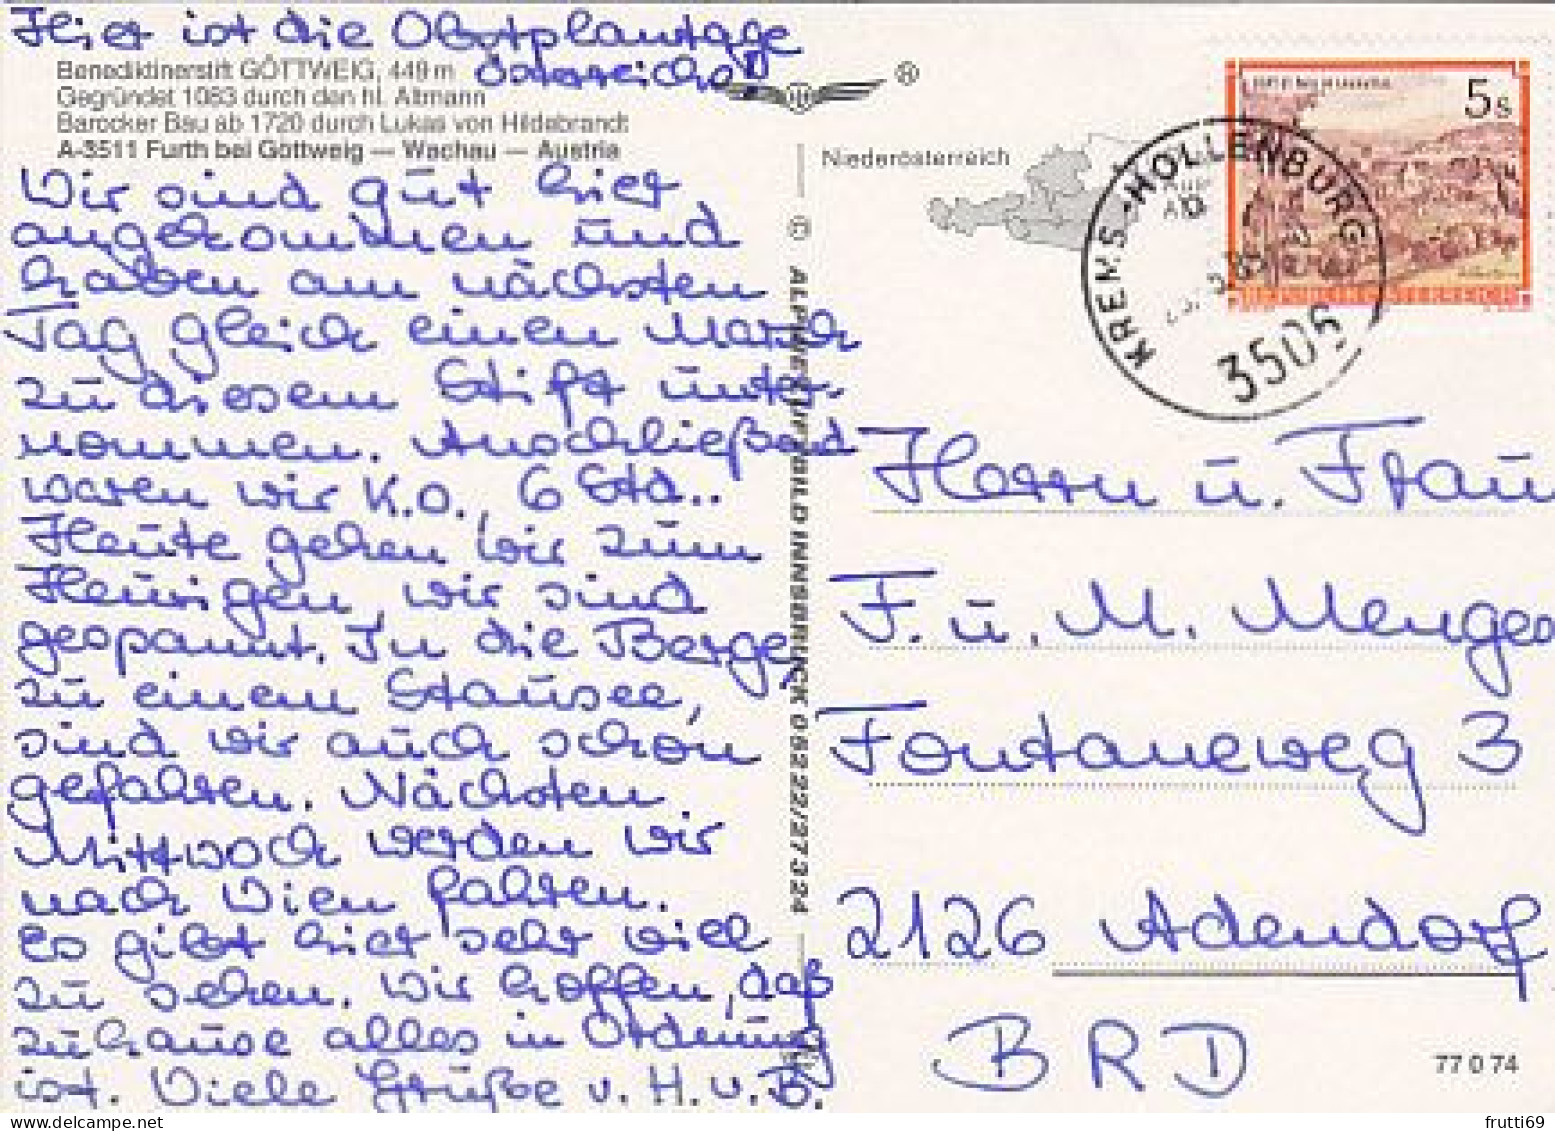 Hier ist die Obstplantage
Österreichs!
Benediktinerstift GÖTTWEIG, 449 m
Gegründet 1083 durch den hl. Altmann
Barocker Bau ab 1720 durch Lukas von Hildebrandt
A-3511 Furth bei Göttweig — Wachau — Austria
Wir sind gut hier
angekommen und
haben am nächsten
Tag gleich einen Marsch
zu diesem Stift unter-
nommen. Anschließend
waren wir K.O., 6 Std..
Heute gehen wir zum
Heurigen, wir sind
gespannt. In die Berge,
zu einem Stausee,
sind wir auch schon
gefahren. Nächsten
Mittwoch werden wir
nach Wien fahren.
Es gibt hier sehr viel
zu sehen. Wir hoffen, daß
zuhause alles in Ordnung
ist. Viele Grüße v. H. u. B.
© ALPINE LUFTBILD INNSBRUCK 05222/27324
®
Niederösterreich
5 S
REPUBLIK ÖSTERREICH
KREMS-HOLLENBURG
3506
Herrn u. Frau
F. u. M. Menges
Fontaneweg 3
2126 Adendorf
BRD
77 0 74
frutti69